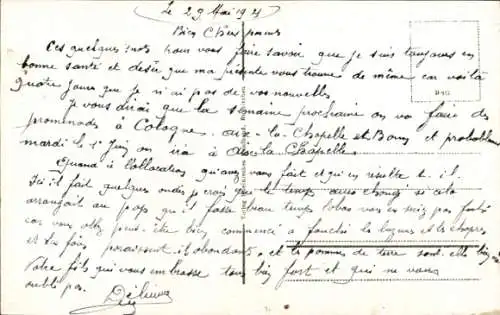 Le 29 Mai 192
Bien Chers parents
Ces quelques mots pour vous faire savoir que je suis toujours en
bonne santé et désire que ma présente vous trouve de même car voilà
quatre jours que je n'ai pas de vos nouvelles
Je vous dirai que la semaine prochaine on va faire des
promenades à Cologne aix-la-Chapelle et Bonn et probablement
mardi le 1 Juin on ira à Aix la Chapelle
Quand à l'allocation qu'avez vous fait et qu'en résulte-t-il.
Ici il fait quelques ondées je crois que le temps aura changé si cela
arrangait au pays qu'il fasse beau temps
car vous allez peut-être bien commencé à faucher la luzerne et les
et du foin paraissent-ils abondants et les pommes de terre sont-elles
Votre fils qui vous embrasse tous bien fort et qui ne vous
oublie pas.